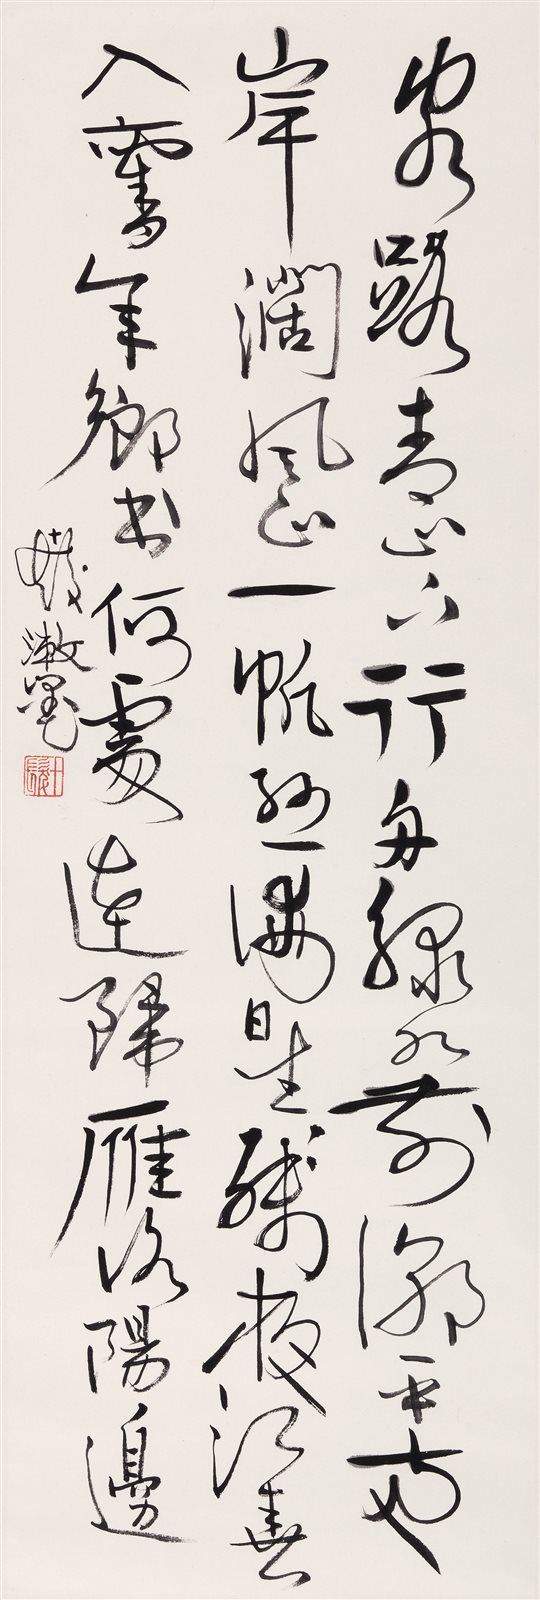 客路青山下行舟綠水前潮平兩
岸濶風正一帆懸海日生殘夜江春
入舊年鄉書何處達歸雁洛陽邊
漱墨